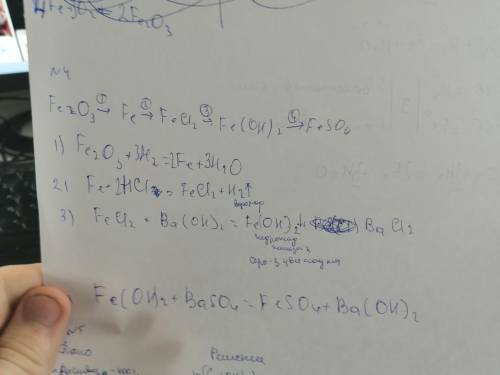 4Fe + 3O₂ = 2Fe₂O₃
№4
Fe₂O₃ →① Fe →② FeCl₂ →③ Fe(OH)₂ →④ FeSO₄
1) Fe₂O₃ + 3H₂ = 2Fe + 3H₂O
2) Fe + 2HCl = FeCl₂ + H₂↑
водород
3) FeCl₂ + Ba(OH)₂ = Fe(OH)₂↓ + BaCl₂
гидроксид
железа 2
Fe(OH)₂ + BaSO₄ = FeSO₄ + Ba(OH)₂
№5
Дано
Решение